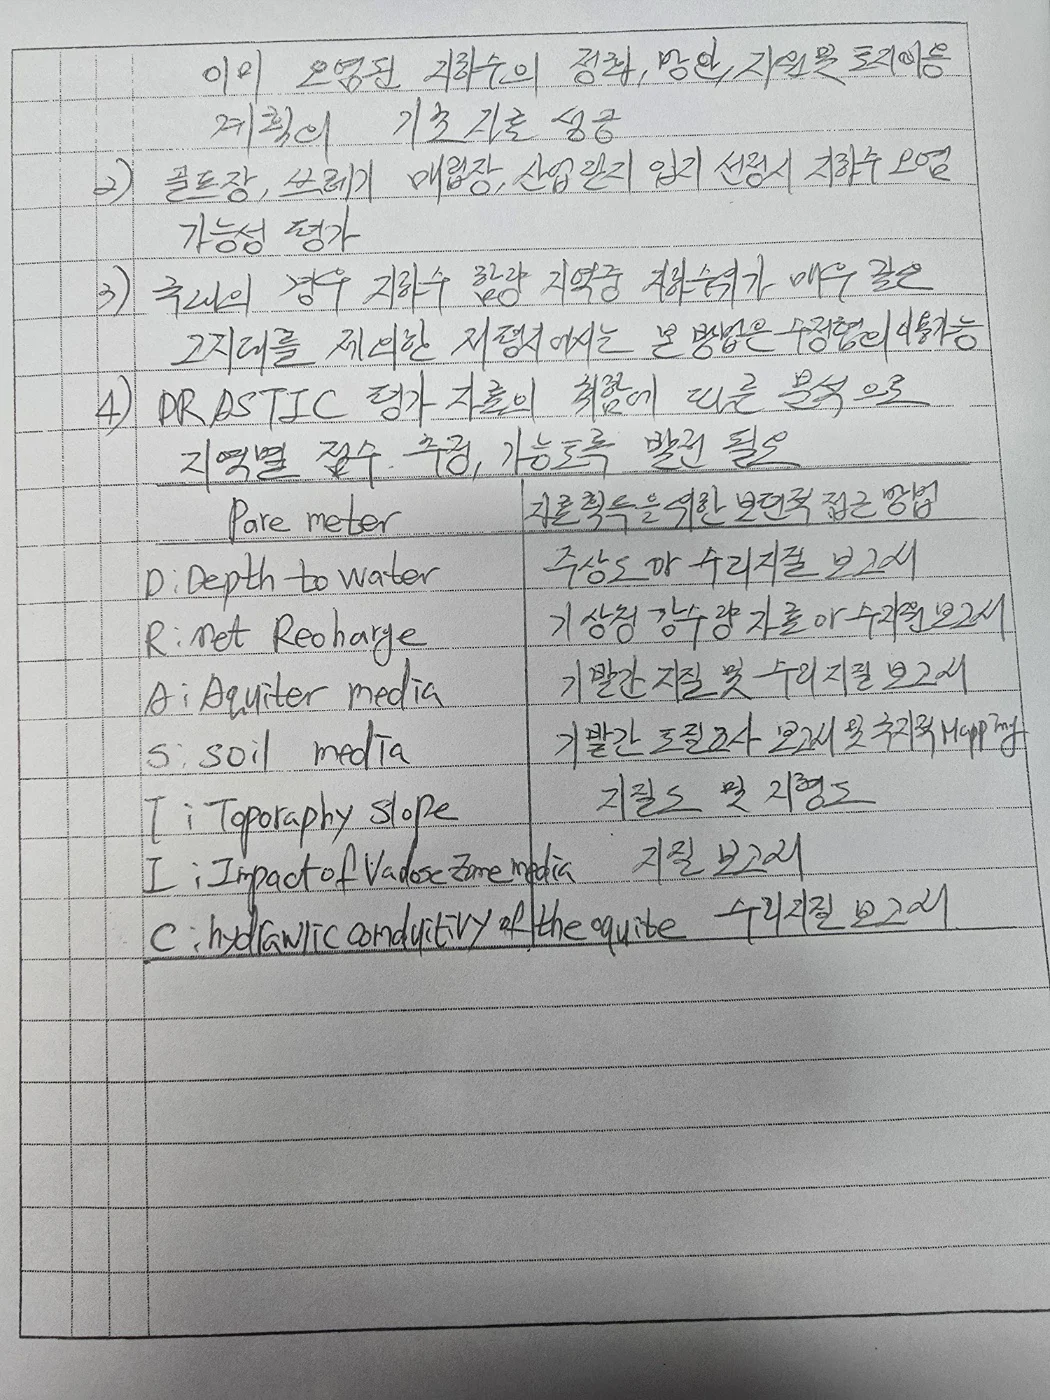 이미 오염된 지하수의 정화, 방안, 자원 및 토지이용
계획의 기초 자료 성공
2) 골프장, 쓰레기 매립장, 산업단지 입지 선정시 지하수 오염
가능성 평가
3) 경우 지하수 함량 지역중 지하수위가 매우
제외한 에서는 본 방법은
4) DRASTIC 평가 자료의 취합에 따른 분석으로
지역별 점수 추정, 가능토록 발전 필요
Parameter 자료획득을 위한 보편적 접근 방법
D : Depth to water 주상도 와 수리지질 보고서
R : net Recharge 기상청 강수량 자료 와 수자원 보고서
A : Aquiter media 기발간 지질 및 수리지질 보고서
S : soil media 기발간 토질조사 보고서 및 Mapping
T : Toporaphy slope 지질도 및 지형도
I : Impact of Vadose Zone media 지질 보고서
C : of the 수리지질 보고서